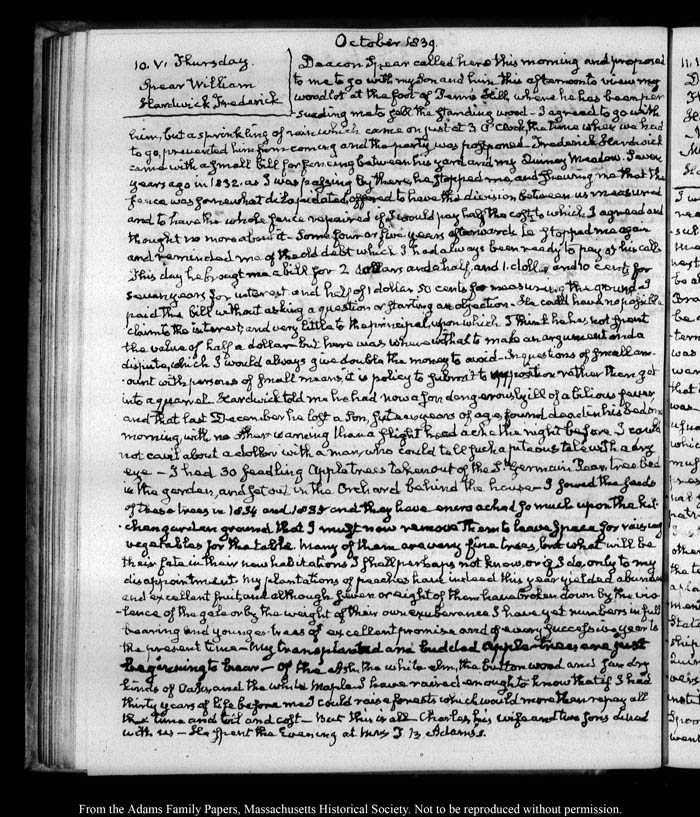 October 1839.
10. V. Thursday.
Spear William
Hardwick Frederick
Deacon Spear called here this morning and proposed
to me to go with my Son and him this afternoon to view my
woodlot at the foot of Penn's Hill, where he has been per
suading me to fell the standing wood - I agreed to go with
him, but a sprinkling of rain which came on just at 3 O'Clock, the time when we had
to go, prevented him from coming and the party was postponed - Frederick Hardwick
came with a small bill for fencing between his yard and my Quincy Meadow. Seven
years ago in 1832. as I was passing by there, he stopped me, and shewing me that the
fence was somewhat dilapidated, offered to have the division between us measured
and to have the whole fence repaired if I would pay half the cost, to which I agreed and
thought no more about it - Some four or five years afterwards he stopped me again
and reminded me of the old debt which I had always been ready to pay at his call.
This day he brought me a bill for 2 dollars and half, and 1. dollar and 10 cents for
seven years for interest and half of 1 dollar 50 cents for measuring the ground - I
paid the bill without asking a question or starting an objection - He could have no possible
claim to the interest, and very little to the principal, upon which I think he has not spent
the value of half a dollar - but here was wherewithal to make an argument and a
dispute, which I would always give double the money to avoid - In questions of small am-
ount with persons of small means, it is policy to submit to rather than get
into a quarrel. Hardwick told me he had now a son dangerously ill of a bilious fever,
and that last December he lost a Son, years of age, found dead in his bed one
morning, with no other warning than a slight head ache the night before. I could
not cavil about a dollar with a man, who could tell such a piteous tale with a dry
eye - I had 30 seedling Apple trees taken out of the St. Germain Pear tree bed
in the garden, and set out in the Orchard behind the house - I sowed the seeds
of these trees in 1834 and 1835 and they have encroached so much upon the kit-
chen garden ground that I must now remove them to leave space for raising
vegetables for the table. Many of them are very fine trees, but what will be
their fate in their new habitations I shall perhaps not know, or if I do, only to my
disappointment. My plantations of peaches have indeed this year yielded abundant
and excellent fruit, and although seven or eight of them have broken down by the vio-
lence of the gale or by the weight of their own exuberance I have yet numbers in full
bearing and younger trees of excellent promise and of every successive year to
the present time - My transplanted and budded apple-trees are just
beginning to bear - of the ash, the white elm, the button wood and
kinds of Oaks, and the white Maple I have raised enough to know that if I had
thirty years of life before me I could raise forests which would more than repay all
the time and toil and cost - but this is all. Charles, his wife and two sons dined
with us - He spent the Evening at Mrs T. B. Adams's.
From the Adams Family Papers, Massachusetts Historical Society. Not to be reproduced without permission.